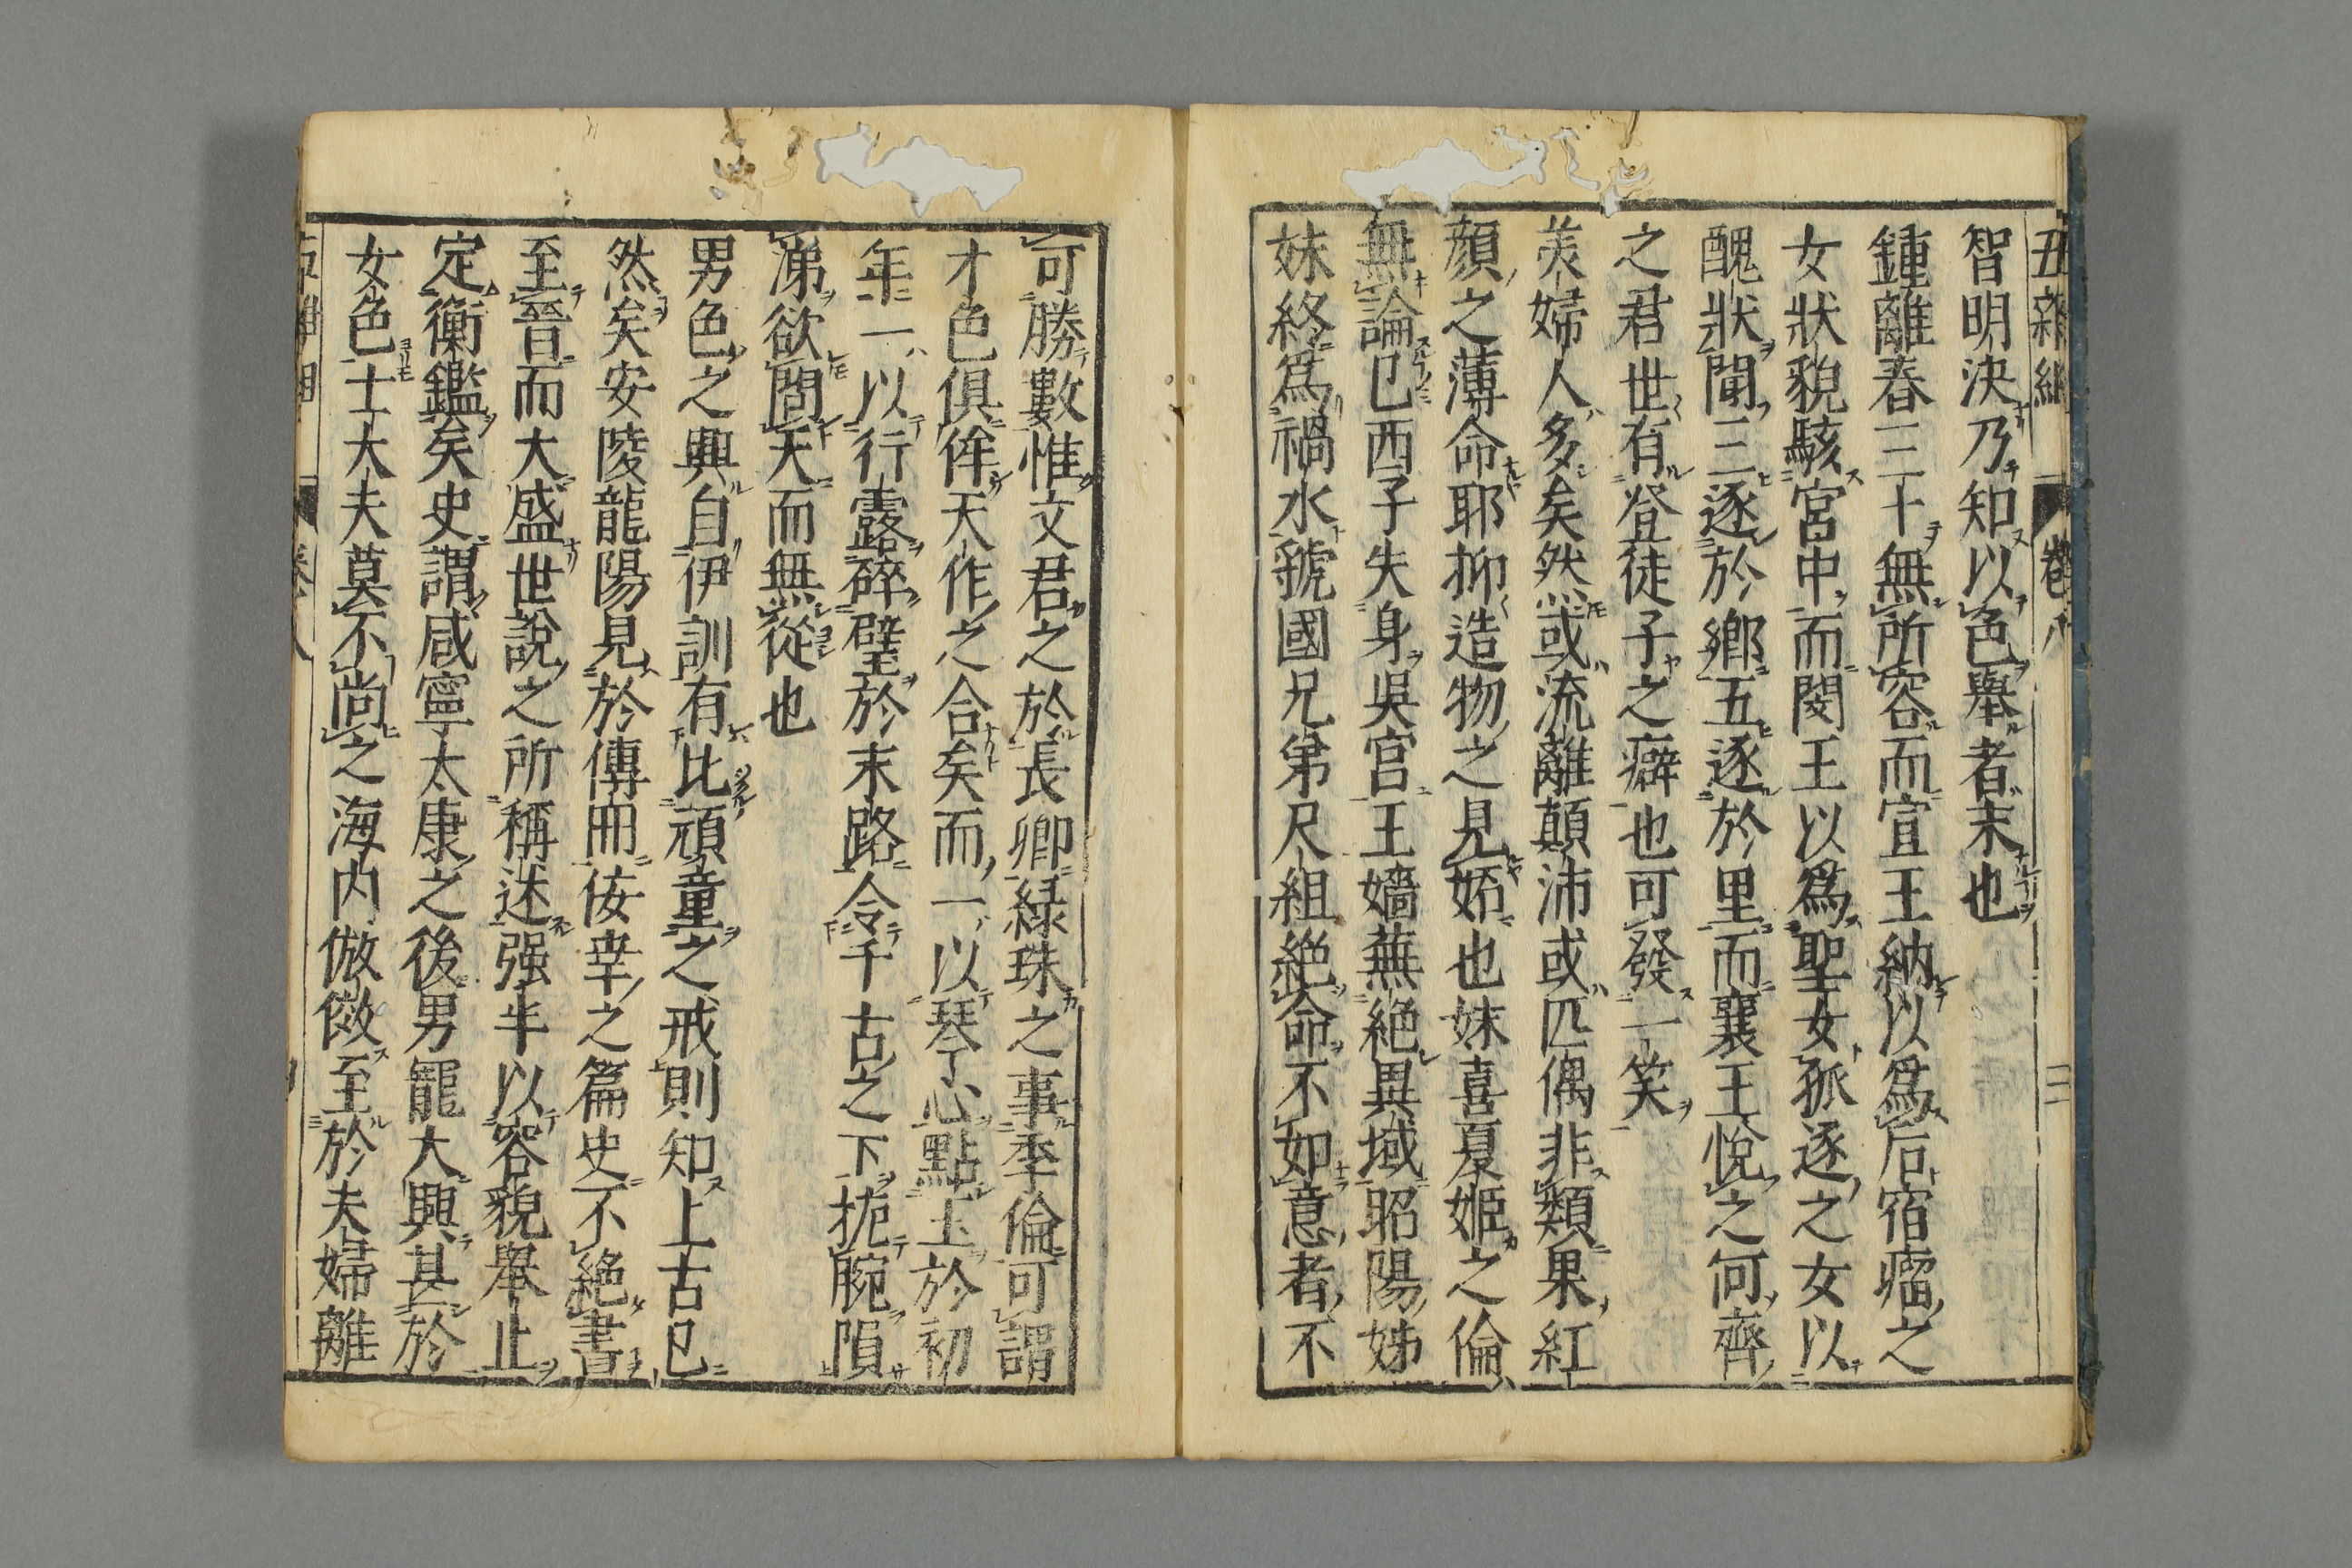 五雜組 卷八 二
智明決乃知以色舉者末也
鍾離春三十無所容而宣王納以爲后宿瘤之
女狀貌駭宮中而閔王以爲聖女孤逐之女以
醜狀聞三逐於鄉五逐於里而襄王悅之何齊
之君世有登徒子之癖也可發一笑
美婦人多矣然或流離顛沛或匹偶非類果紅
顏之薄命耶抑造物之見妬也妹喜夏姬之倫
無論已西子失身吳宮王嬙蕪絕異域昭陽姊
妹終爲禍水虢國兄弟尺組絕命不如意者不
可勝數惟文君之於長卿綠珠之事季倫可謂
才色俱侔天作之合矣而一以琴心點玉於初
年一以行露碎璧於末路令千古之下扼腕隕
涕欲問天而無從也
男色之興自伊訓有比頑童之戒則知上古已
然矣安陵龍陽見於傳冊佞幸之篇史不絕書
至晉而大盛世說之所稱述强半以容貌舉止
定衡鑑矣史謂咸寧太康之後男寵大興甚於
女色士大夫莫不尚之海內倣傚至於夫婦離